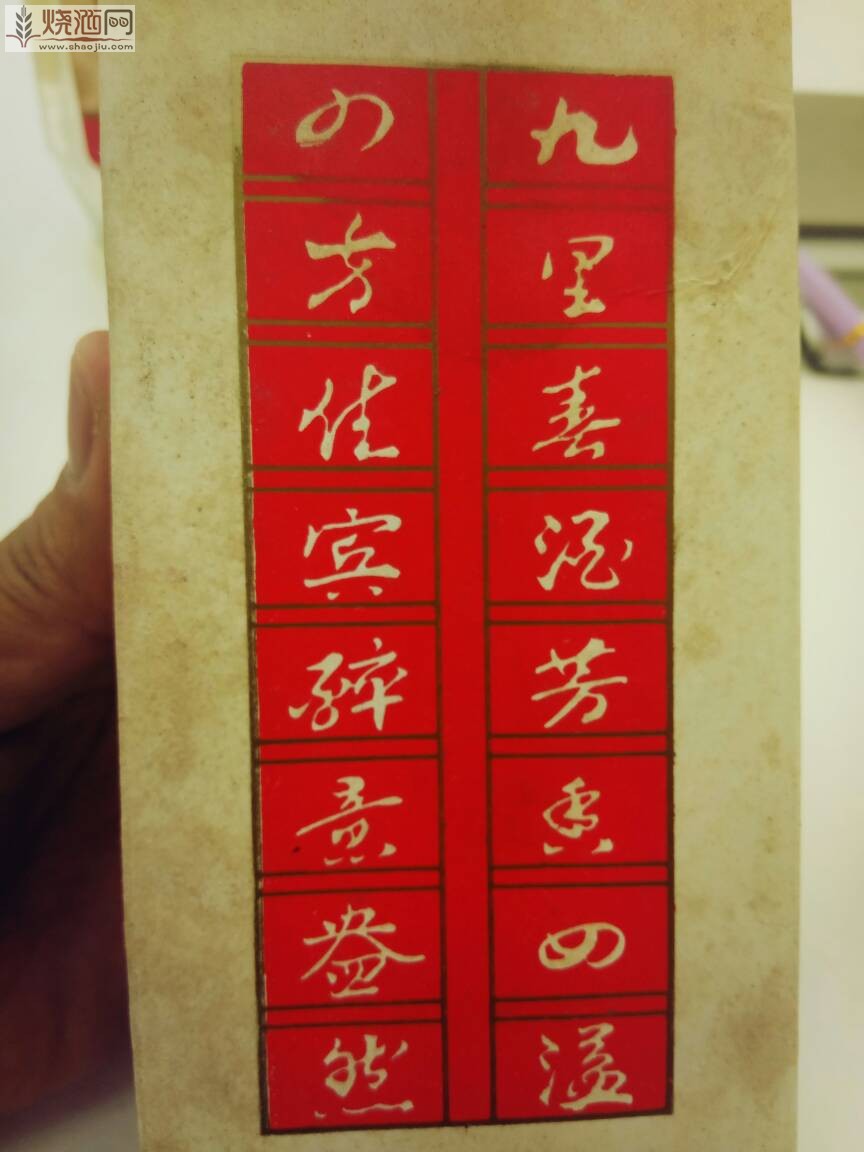 烧酒网
www.shaojiu.com
九里春酒芳香四溢
四方佳宾醉意盎然